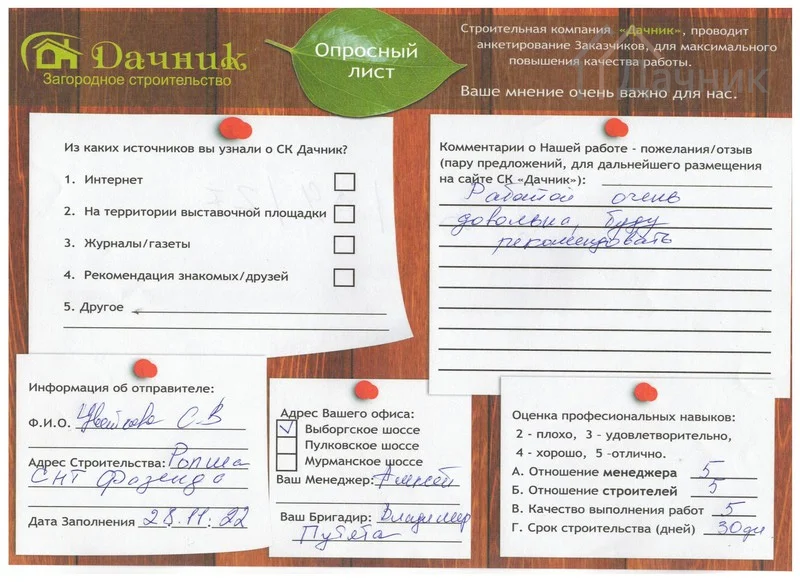 Дачник
Загородное строительство
Опросный
лист
Строительная компания «Дачник», проводит
анкетирование Заказчиков, для максимального
повышения качества работы.
Ваше мнение очень важно для нас.
Дачник
Из каких источников вы узнали о СК Дачник?
1. Интернет
2. На территории выставочной площадки
3. Журналы/газеты
4. Рекомендация знакомых/друзей
5. Другое
Комментарии о Нашей работе - пожелания/отзыв
(пару предложений, для дальнейшего размещения
на сайте СК «Дачник»):
Работой очень
довольна, буду
рекомендовать
Информация об отправителе:
Ф.И.О. Цветкова С.В
Адрес Строительства: Ропша
СНТ Фазенда
Дата Заполнения 28.11.22
Адрес Вашего офиса:
Выборгское шоссе
Пулковское шоссе
Мурманское шоссе
Ваш Менеджер: Алексей
Ваш Бригадир: Владимир
Путята
Оценка професиональных навыков:
2 - плохо, 3 - удовлетворительно,
4 - хорошо, 5 -отлично.
А. Отношение менеджера 5
Б. Отношение строителей 5
В. Качество выполнения работ 5
Г. Срок строительства (дней) 30дн